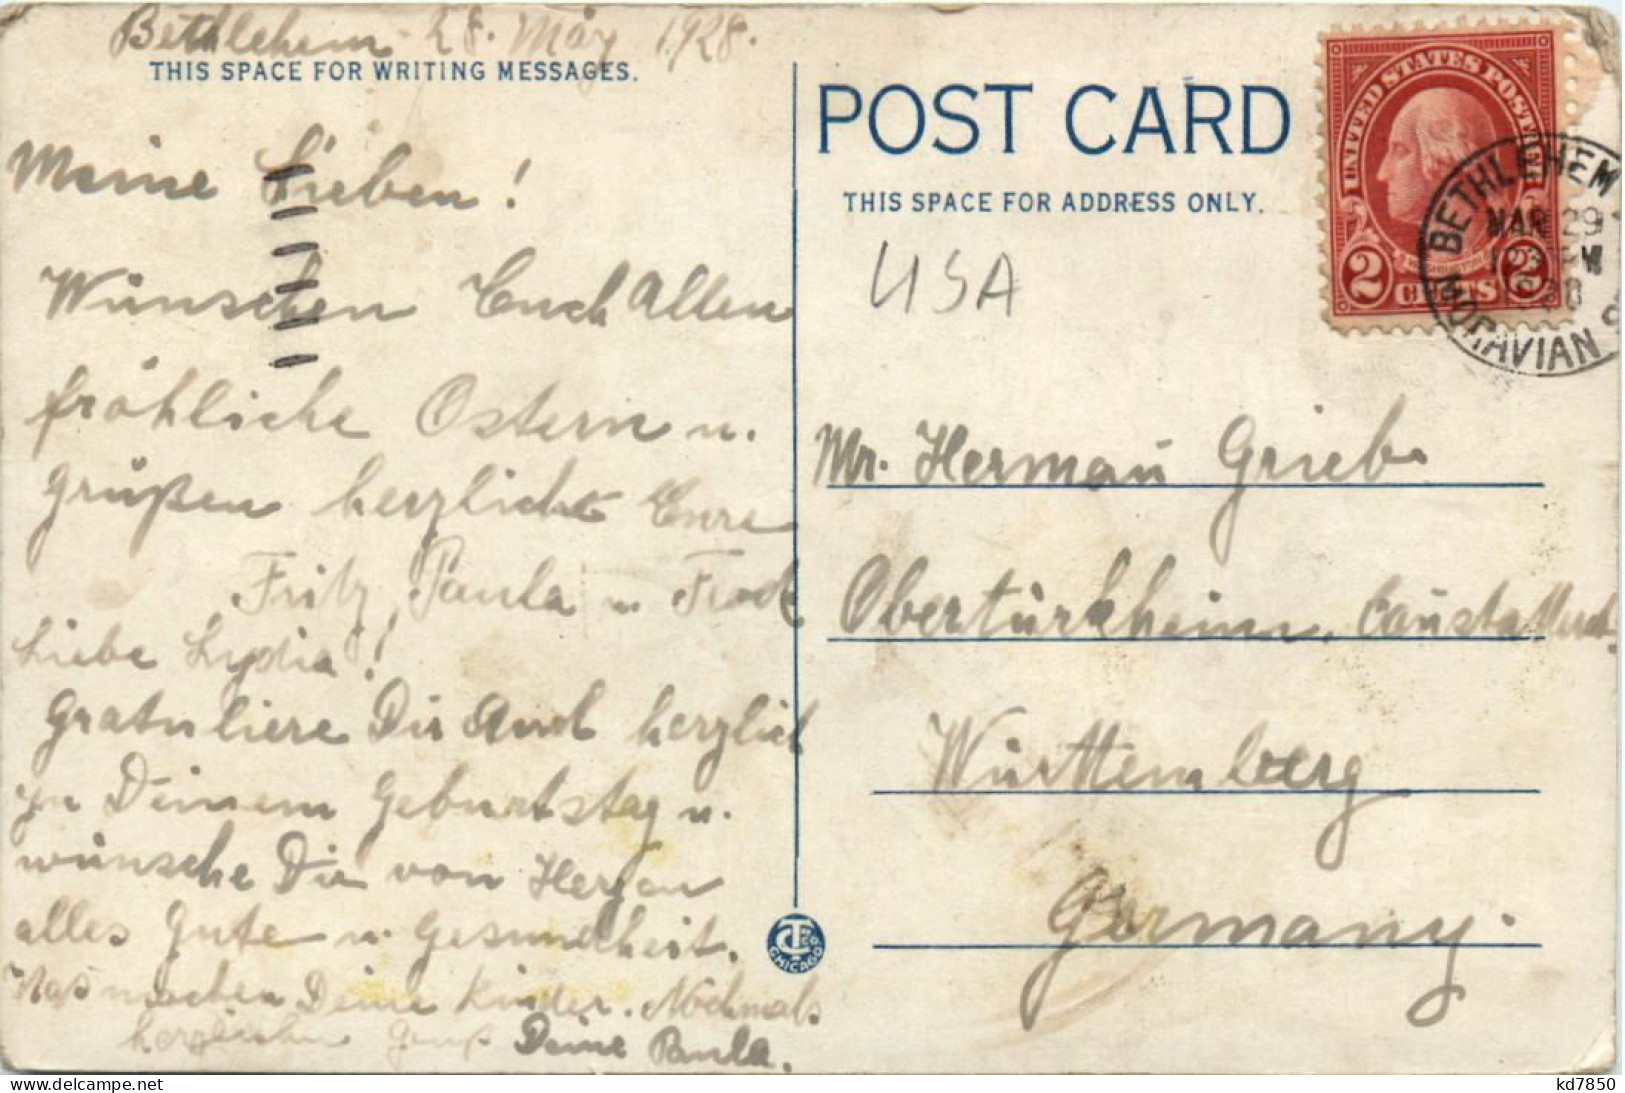 Bethlehem 28. März 1928.
THIS SPACE FOR WRITING MESSAGES.
Meine Lieben!
Wünschen Euch Allen
fröhliche Ostern u.
grüßen herzlichst Eure
Fritz, Paula u.
Liebe Lydia!
Gratuliere Dir auch herzlich
zu Deinem Geburtstag u.
wünsche Dir von Herzen
alles Gute u. Gesundheit.
Was machen Deine Kinder. Nochmals
herzlichen Gruß Deine Paula.
POST CARD
THIS SPACE FOR ADDRESS ONLY.
USA
UNITED STATES POSTAGE
WASHINGTON
2 CENTS 2
BETHLEHEM
MAR 29
PM
MORAVIAN
Mr. Herman Grieb
Obertürkheim,
Württemberg
Germany.
CT CO
CHICAGO
kd7850